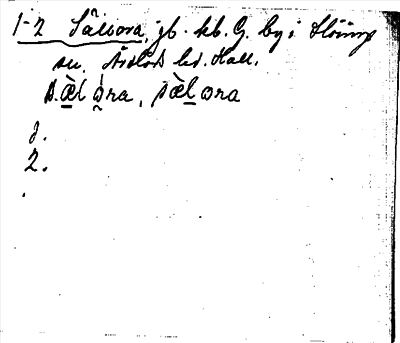 1-2 Sällsora, jb. kb. G. by i Slöinge
sn. Årstads hd. Hall.
s.æ̀l ò̰ra, sæ̀l ora
1.
2.